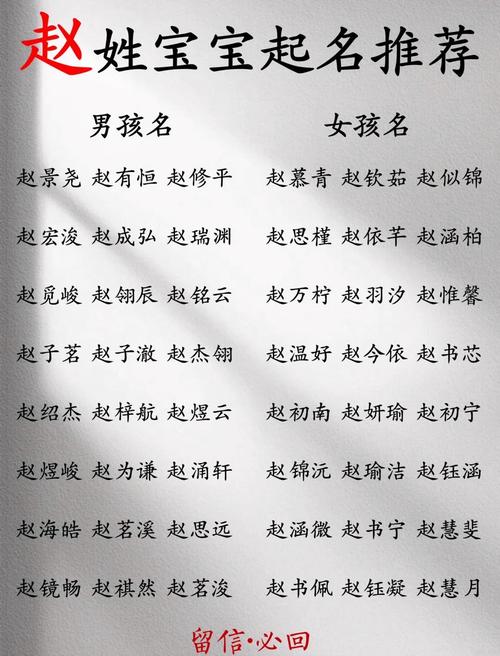 赵姓宝宝起名推荐
男孩名 女孩名
赵景尧 赵有恒 赵修平 赵慕青 赵钦茹 赵似锦
赵宏浚 赵成弘 赵瑞渊 赵思槿 赵依芊 赵涵柏
赵觅峻 赵翎辰 赵铭云 赵万柠 赵羽汐 赵惟馨
赵子茗 赵子澈 赵杰翎 赵温好 赵今依 赵书芯
赵绍杰 赵梓航 赵煜云 赵初南 赵妍瑜 赵初宁
赵煜峻 赵为谦 赵涌轩 赵锦沅 赵瑜洁 赵钰涵
赵海皓 赵茗溪 赵思远 赵涵微 赵书宁 赵慧斐
赵镜畅 赵祺然 赵茗浚 赵书佩 赵钰凝 赵慧月
留信·必回